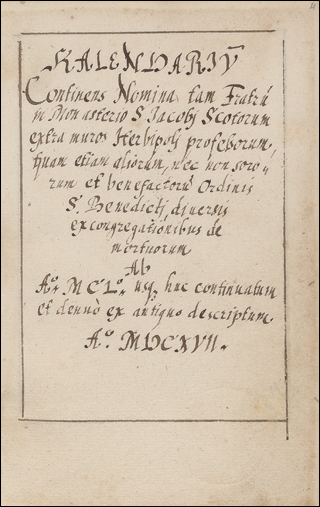 KALENDARIV̄
Continens Nomina tam Fratrū
in Monasterio S. Jacobj Scotorum
extra muros Herbipolj professorum,
quam etiam aliorum, nec non soro=
rum et benefactorū Ordinis
S. Benedictj, diversis
ex congregationibus de
mortuorum
Ab
Aº. MCLº. usq, huc continuatum
et denuò ex antiquo descriptum.
Aº. MDCXVII.